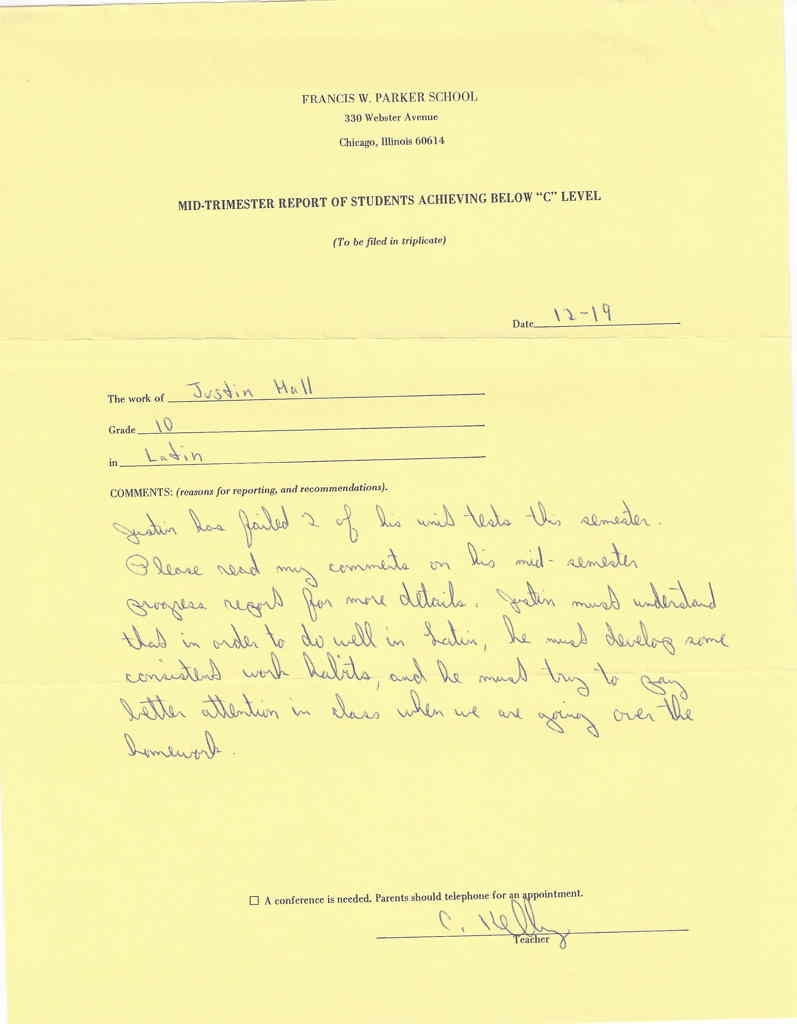 FRANCIS W. PARKER SCHOOL
330 Webster Avenue
Chicago, Illinois 60614
MID-TRIMESTER REPORT OF STUDENTS ACHIEVING BELOW "C" LEVEL
(To be filed in triplicate)
Date 12-19
The work of Justin Hall
Grade 10
in Latin
COMMENTS: (reasons for reporting, and recommendations).
Justin has failed 2 of his unit tests this semester.
Please read my comments on his mid-semester
progress report for more details. Justin must understand
that in order to do well in Latin, he must develop some
consistent work habits, and he must try to pay
better attention in class when we are going over the
homework.
☐ A conference is needed. Parents should telephone for an appointment.
C. Kelly
Teacher